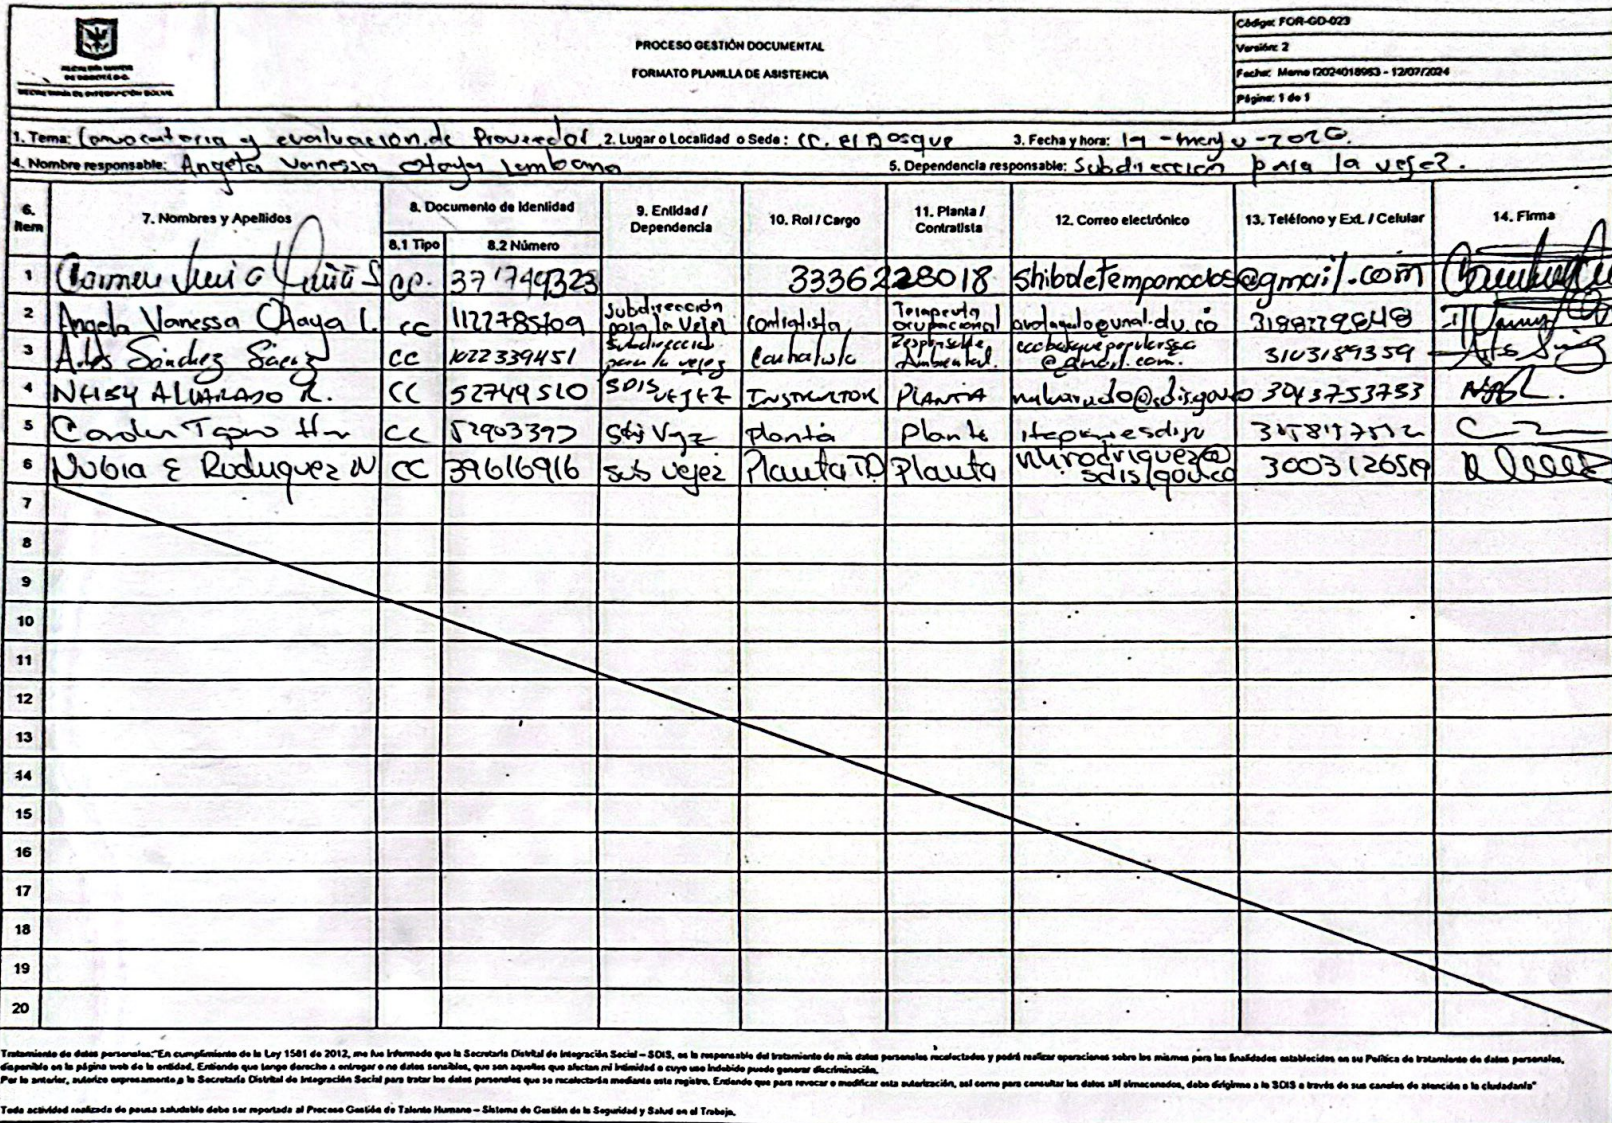 ALCALDÍA MAYOR
DE BOGOTÁ D.C.
SECRETARÍA DE INTEGRACIÓN SOCIAL
PROCESO GESTIÓN DOCUMENTAL
FORMATO PLANILLA DE ASISTENCIA
Código: FOR-GD-023
Versión: 2
Fecha: Memo I2024018953 - 12/07/2024
Página: 1 de 1
1. Tema: Convocatoria y evaluación de Proveedor 2. Lugar o Localidad o Sede: CC. el Bosque 3. Fecha y hora: 19 - mayo - 2026.
4. Nombre responsable: Angela Vanessa Otaya Lombana 5. Dependencia responsable: Subdirección para la vejez.
6. Item 7. Nombres y Apellidos 8. Documento de Identidad 9. Entidad / Dependencia 10. Rol / Cargo 11. Planta / Contratista 12. Correo electrónico 13. Teléfono y Ext. / Celular 14. Firma
8.1 Tipo 8.2 Número
1 Carmen CC. 37'749323 3336228018 shibdetemporadas@gmail.com
2 Angela Vanessa Otaya L. CC 1122785709 Subdirección para la Vejez contratista Terapeuta ocupacional 3188229848
3 Sánchez Sáenz CC 1022339451 Subdirección para la vejez Contratista Responsable Ambiental. @gmail.com. 3103189359
4 NEISY ALVARADO R. CC 52749510 SDIS VEJEZ INSTRUCTOR PLANTA 3043753753
5 CC 52903397 Planta Planta
6 Nubia E Rodriguez N CC 39616916 sub vejez Planta TD Planta 3003126519
7
8
9
10
11
12
13
14
15
16
17
18
19
20
Tratamiento de datos personales: "En cumplimiento de la Ley 1581 de 2012, me fue informado que la Secretaría Distrital de Integración Social – SDIS, es la responsable del tratamiento de mis datos personales recolectados y podrá realizar operaciones sobre los mismos para las finalidades establecidas en su Política de tratamiento de datos personales,
disponible en la página web de la entidad. Entiendo que tengo derecho a entregar o no datos sensibles, que son aquellos que afectan mi intimidad o cuyo uso indebido puede generar discriminación.
Por lo anterior, autorizo expresamente a la Secretaría Distrital de Integración Social para tratar los datos personales que se recolectarán mediante este registro. Entiendo que para revocar o modificar esta autorización, así como para consultar los datos allí almacenados, debo dirigirme a la SDIS a través de sus canales de atención a la ciudadanía"
Toda actividad realizada de pausa saludable debe ser reportada al Proceso Gestión de Talento Humano – Sistema de Gestión de la Seguridad y Salud en el Trabajo.